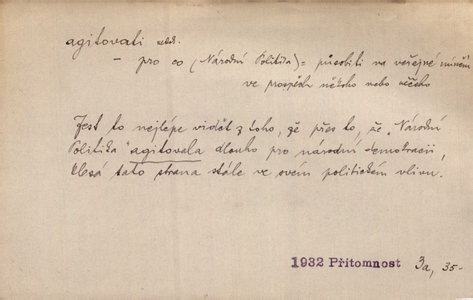 agitovati ned.
– pro co (Národní Politika) = působiti na veřejné mínění
ve prospěch někoho nebo něčeho
Jest to nejlépe vidět z toho, že přes to, že „Národní
Politika" agitovala dlouho pro národní demokracii,
klesá tato strana stále ve svém politickém vlivu.
1932 Přítomnost 3a, 35-